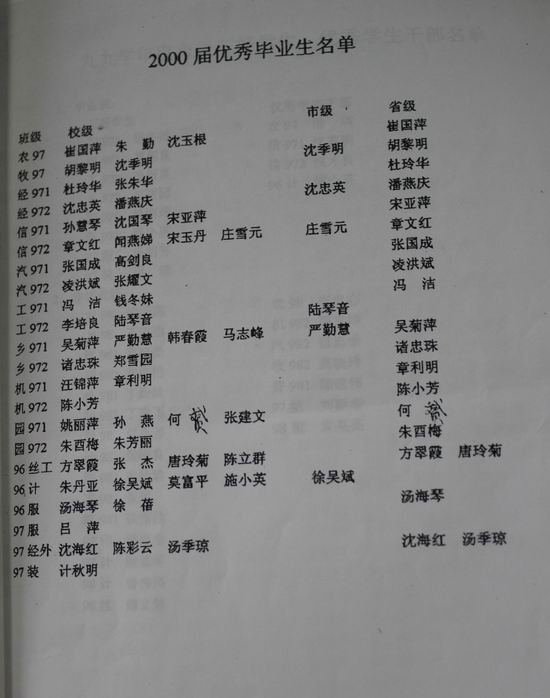 2000 届优秀毕业生名单
班级 校级 市级 省级
农 97 崔国萍 朱 勤 沈玉根 崔国萍
牧 97 胡黎明 沈季明 沈季明 胡黎明
经 971 杜玲华 张朱华 杜玲华
经 972 沈忠英 潘燕庆 沈忠英 潘燕庆
信 971 孙慧琴 沈国琴 宋亚萍 宋亚萍
信 972 章文红 闻燕娣 宋玉丹 庄雪元 庄雪元 章文红
汽 971 张国成 高剑良 张国成
汽 972 凌洪斌 张耀文 凌洪斌
工 971 冯 洁 钱冬妹 冯 洁
工 972 李培良 陆琴音 陆琴音
乡 971 吴菊萍 严勤慧 韩春霞 马志峰 严勤慧 吴菊萍
乡 972 诸忠珠 郑雪园 诸忠珠
机 971 汪锦萍 章利明 章利明
机 972 陈小芳 陈小芳
园 971 姚丽萍 孙 燕 何 张建文 何
园 972 朱酉梅 朱芳丽 朱酉梅
96 丝工 方翠霞 张 杰 唐玲菊 陈立群 方翠霞 唐玲菊
96 计 朱丹亚 徐吴斌 莫富平 施小英 徐吴斌
96 服 汤海琴 徐 蓓 汤海琴
97 服 吕 萍
97 经外 沈海红 陈彩云 汤季琼 沈海红 汤季琼
97 装 计秋明